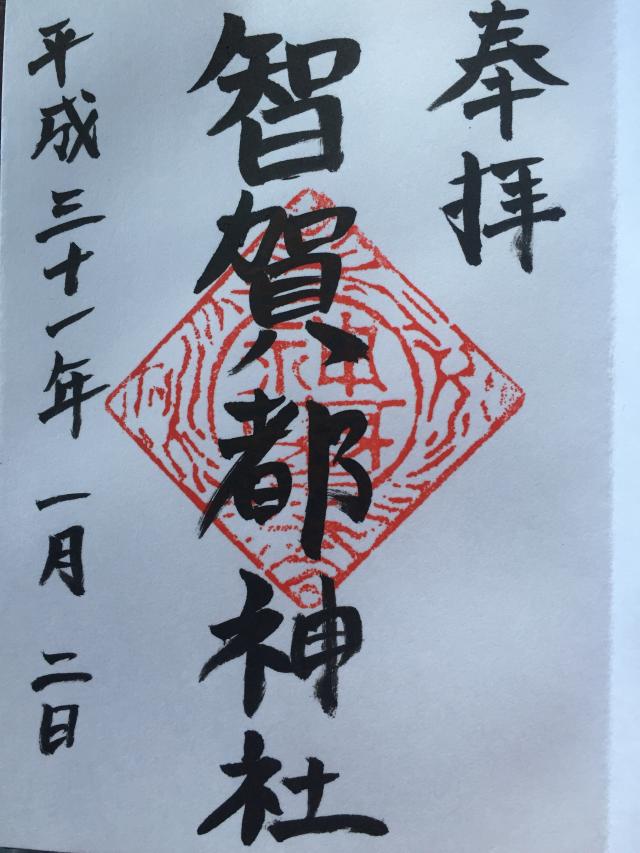 奉拝
智賀都神社
平成三十一年 一月 二日